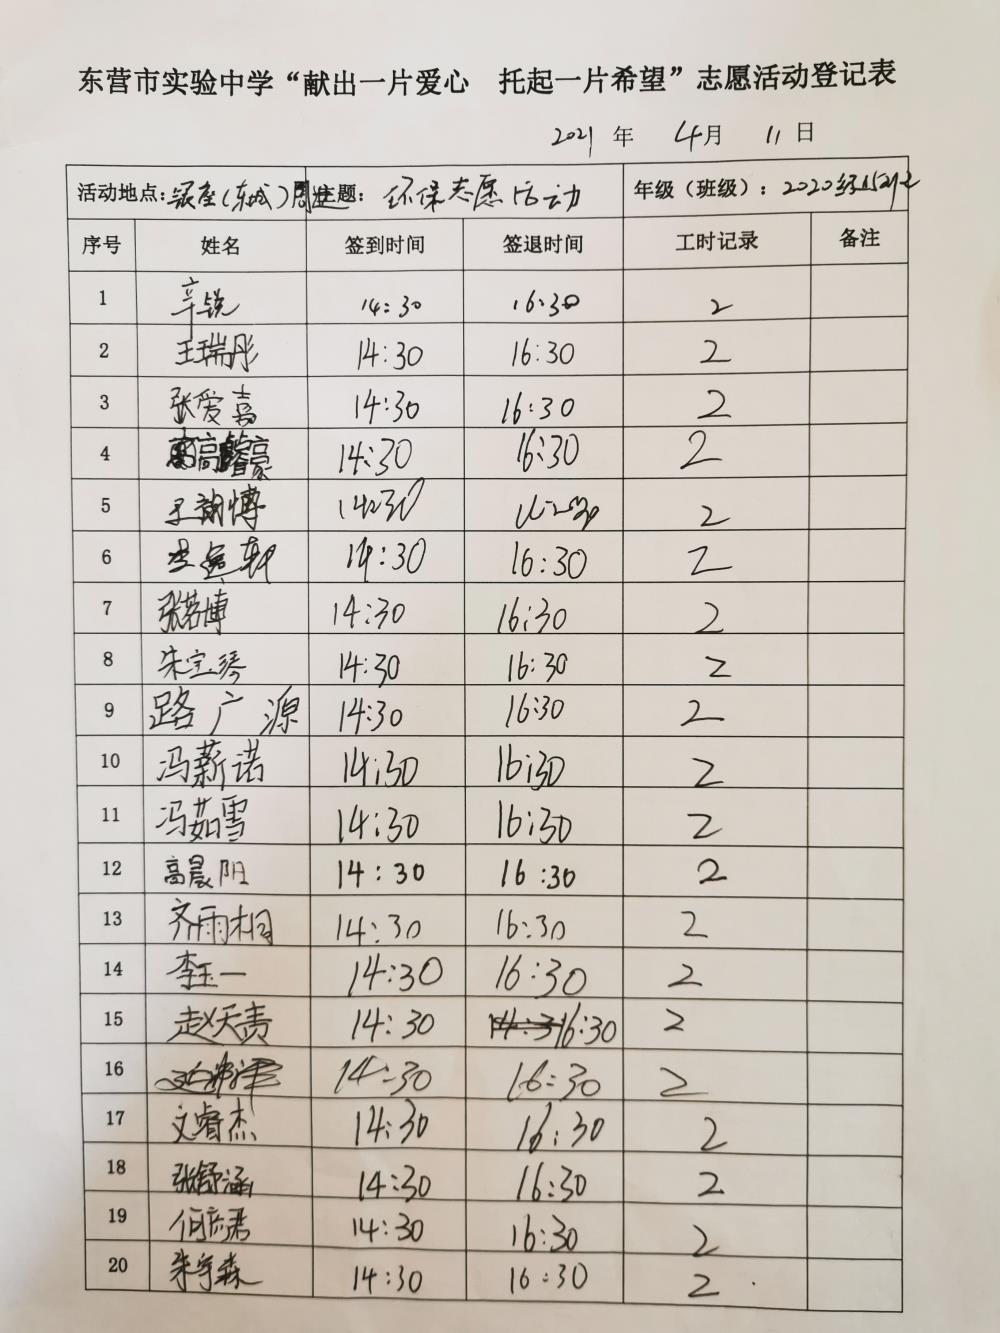 东营市实验中学“献出一片爱心 托起一片希望”志愿活动登记表
2021 年 4月 11 日
活动地点:银座(东城)周边 主题: 环保志愿活动 年级（班级）: 2020级
序号 姓名 签到时间 签退时间 工时记录 备注
1 辛锐 14:30 16:30 2
2 王瑞彤 14:30 16:30 2
3 张爱嘉 14:30 16:30 2
4 高馨豪 14:30 16:30 2
5 14:30 2
6 14:30 16:30 2
7 张茗博 14:30 16:30 2
8 朱宝琴 14:30 16:30 2
9 路广源 14:30 16:30 2
10 冯薪诺 14:30 16:30 2
11 冯茹雪 14:30 16:30 2
12 高晨阳 14:30 16:30 2
13 齐雨桐 14:30 16:30 2
14 李玉一 14:30 16:30 2
15 赵天责 14:30 16:30 2
16 14:30 16:30 2
17 文睿杰 14:30 16:30 2
18 张舒涵 14:30 16:30 2
19 14:30 16:30 2
20 朱宇森 14:30 16:30 2